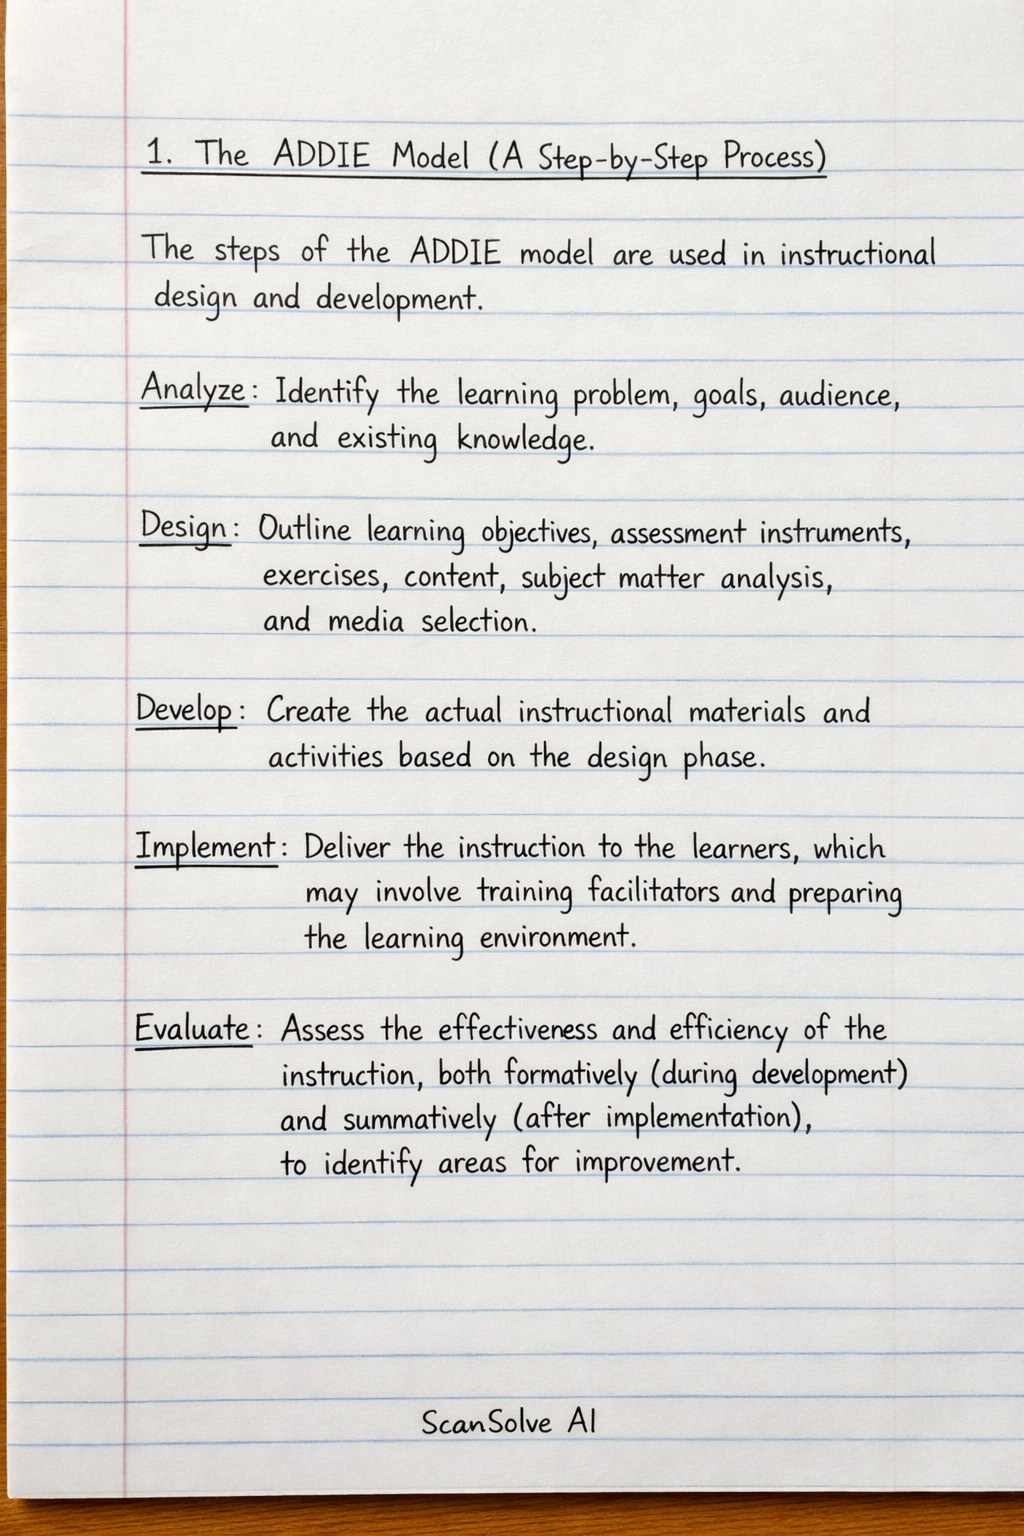 1. The ADDIE Model (A Step-by-Step Process)
The steps of the ADDIE model are used in instructional
design and development.
Analyze: Identify the learning problem, goals, audience,
and existing knowledge.
Design: Outline learning objectives, assessment instruments,
exercises, content, subject matter analysis,
and media selection.
Develop: Create the actual instructional materials and
activities based on the design phase.
Implement: Deliver the instruction to the learners, which
may involve training facilitators and preparing
the learning environment.
Evaluate: Assess the effectiveness and efficiency of the
instruction, both formatively (during development)
and summatively (after implementation),
to identify areas for improvement.
ScanSolve AI